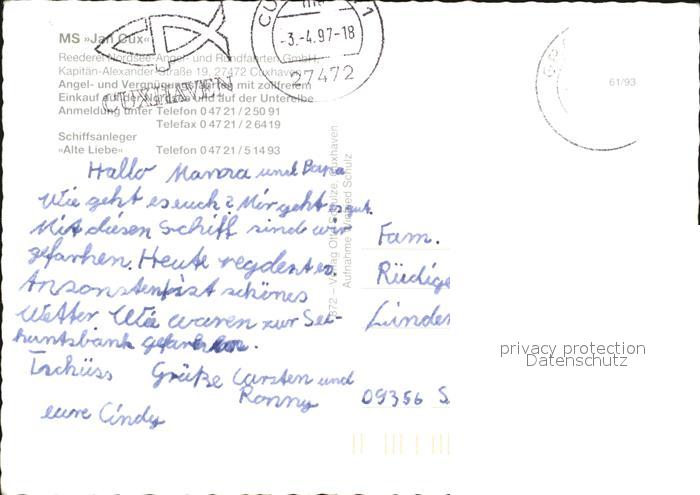 MS »Jan Cux«
Reederei Nordsee-Angel- und Rundfahrten GmbH
Kapitän-Alexander-Straße 19, 27472 Cuxhaven
Angel- und Vergnügungsfahrten mit zollfreiem
Einkauf auf der Nordsee und auf der Unterelbe
Anmeldung unter Telefon 0 47 21 / 2 50 91
Telefax 0 47 21 / 2 64 19
Schiffsanleger
»Alte Liebe« Telefon 0 47 21 / 5 14 93
CUXHAVEN
-3.-4.97-18
27472
61/93
Hallo Mama und Papa
Wie geht es euch? Mir geht es gut.
Mit diesen Schiff sind wir
gefarhen. Heute regdent es.
Ansonsten ist schönes
Wetter Wie waren zur See-
huntsbank gefarhen.
Tschüss Grüße Carsten und
Ronny
eure Cindy
872 – Verlag Otto Schulze, Cuxhaven
Aufnahme: Winfried Schulz
Fam.
Rüdige
Linde
09356 S
privacy protection
Datenschutz